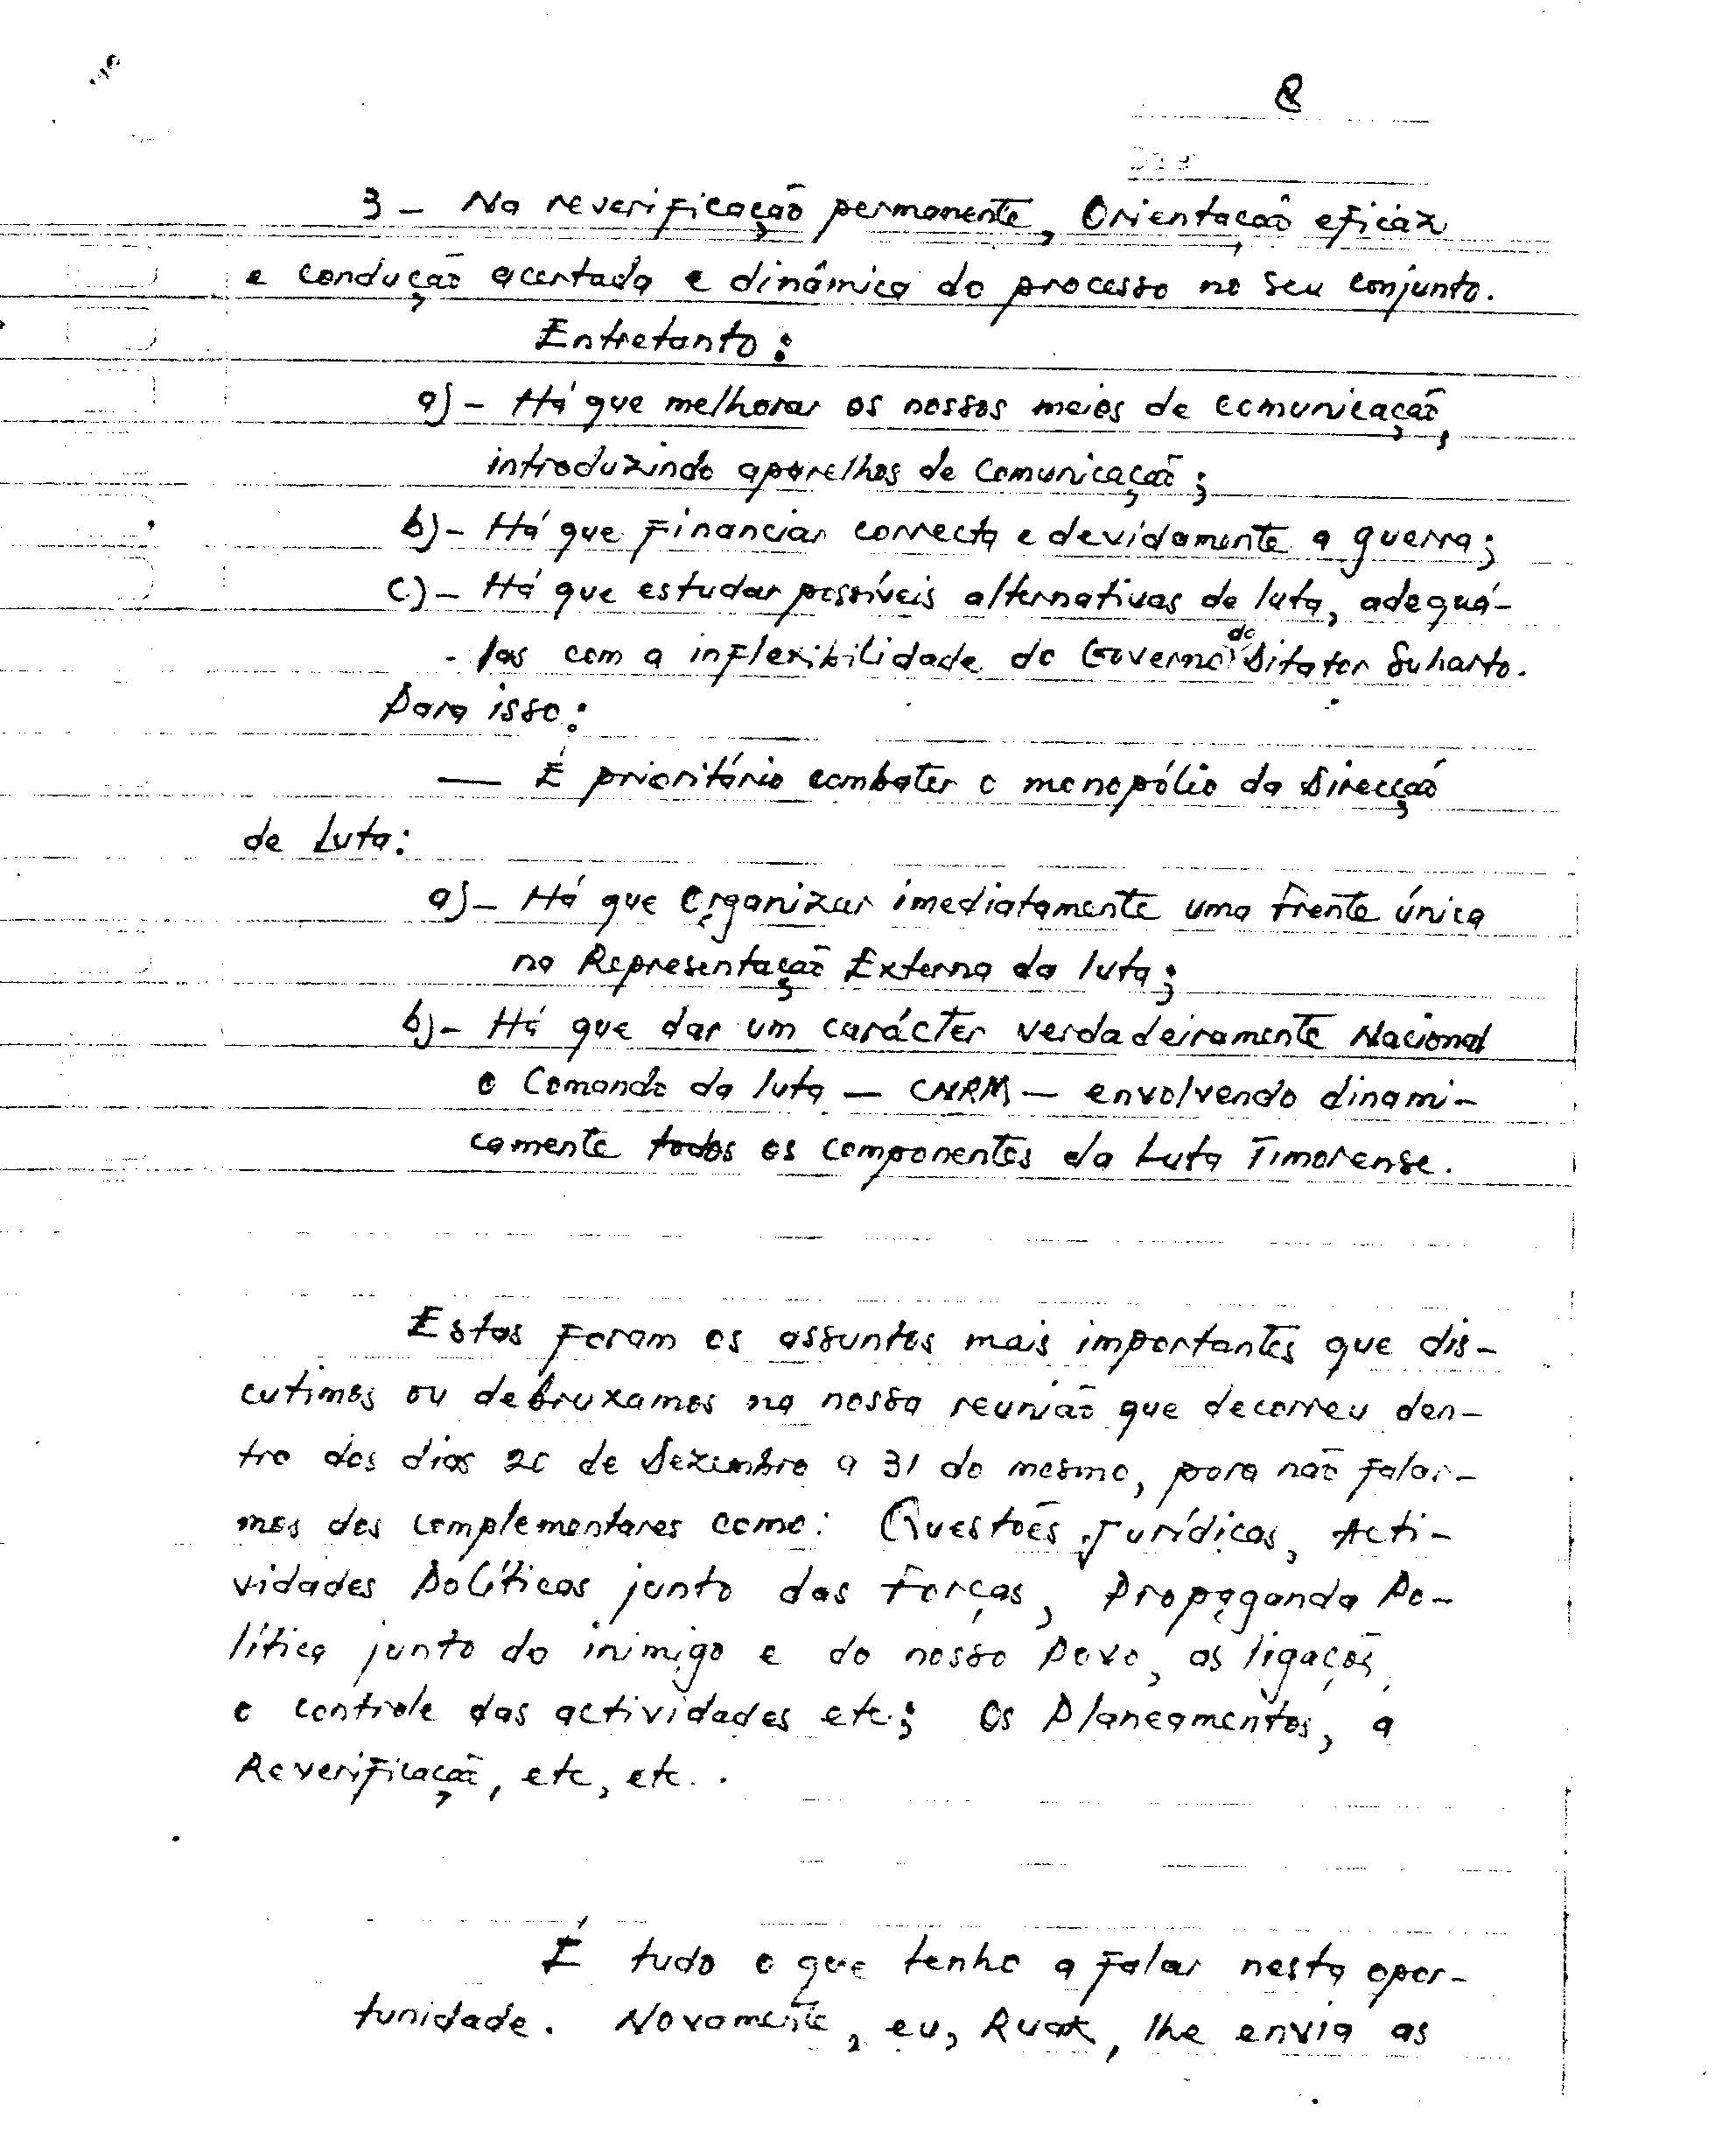 8
3 - Na reverificação permanente, Orientação eficaz
e condução acertada e dinâmica do processo no seu conjunto.
Entretanto:
a) - Há que melhorar os nossos meios de comunicação,
introduzindo aparelhos de Comunicação;
b) - Há que financiar correcta e devidamente a guerra;
c) - Há que estudar possíveis alternativas de luta, adequá-
- las com a inflexibilidade do Governo do Ditator Suharto.
Para isso:
— É prioritário combater o monopólio da Direcção
de Luta:
a) - Há que Organizar imediatamente uma Frente única
na Representação Externa da luta;
b) - Há que dar um carácter verdadeiramente Nacional
o Comando da luta — CNRM — envolvendo dinami-
camente todos os componentes da Luta Timorense.
Estas foram os assuntos mais importantes que dis-
cutimos ou debruxamos na nossa reunião que decorreu den-
tro dos dias 20 de Dezembro a 31 do mesmo, para não falar-
mos dos complementares como: Questões Jurídicas, Acti-
vidades Políticas junto das Forças, Propaganda Po-
lítica junto do inimigo e do nosso Povo, as ligações,
o controle das actividades etc; Os Planeamentos, a
Reverificação, etc, etc..
É tudo o que tenho a falar nesta opor-
tunidade. Novamente, eu, Ruak, lhe envia as